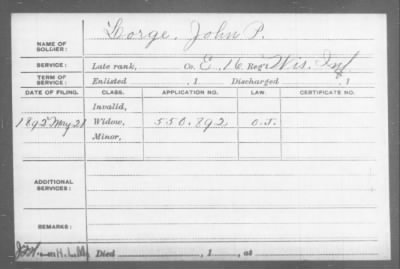 NAME OF SOLDIER: Lorge, John P.
SERVICE: Late rank, Co. E, 16 Reg't Wis. Inf
TERM OF SERVICE: Enlisted , 1 Discharged , 1
DATE OF FILING. CLASS. APPLICATION NO. LAW. CERTIFICATE NO.
Invalid,
1892 May 21 Widow, 550.892 O.L.
Minor,
ADDITIONAL SERVICES:
REMARKS:
Died , 1 , at